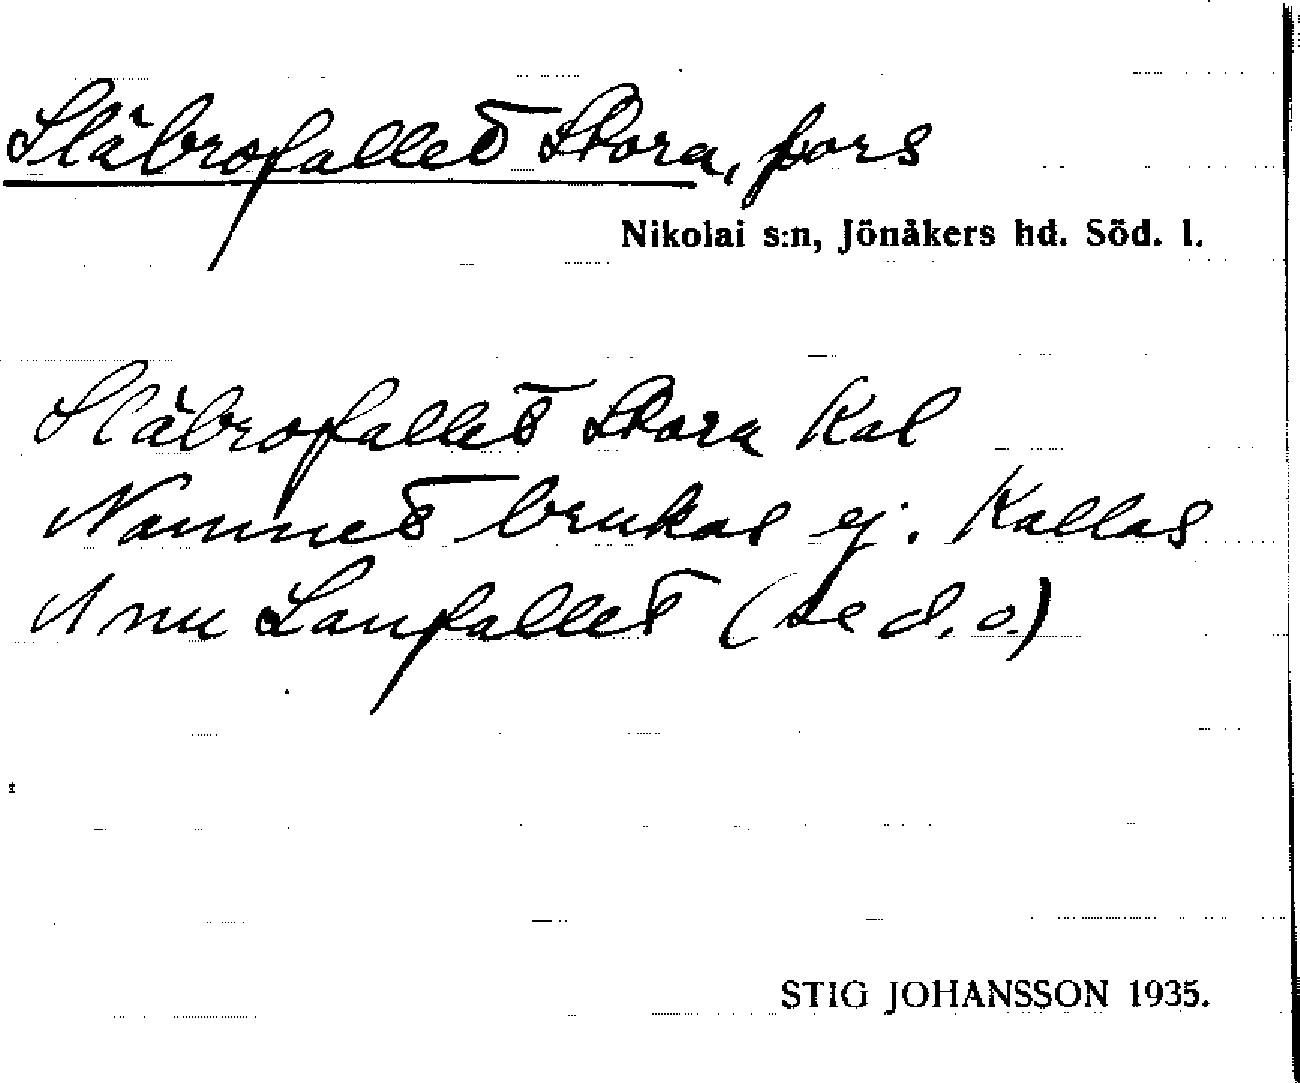 Släbrofallet Stora, fors
Nikolai s:n, Jönåkers hd. Söd. l.
Släbrofallet Stora Kal
Namnet brukas ej. Kallas
nu Lanfallet (se d. o.)
STIG JOHANSSON 1935.